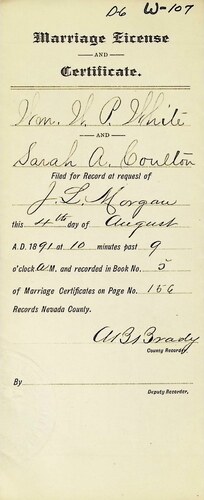 D6 W-107
Marriage License
AND
Certificate.
Wm. W. P. White
AND
Sarah A. Coulton
Filed for Record at request of
J. L. Morgan
this 4th day of August
A.D. 1891 at 10 minutes past 9
o'clock A.M. and recorded in Book No. 5
of Marriage Certificates on Page No. 156
Records Nevada County.
Brady
County Recorder.
By
Deputy Recorder.